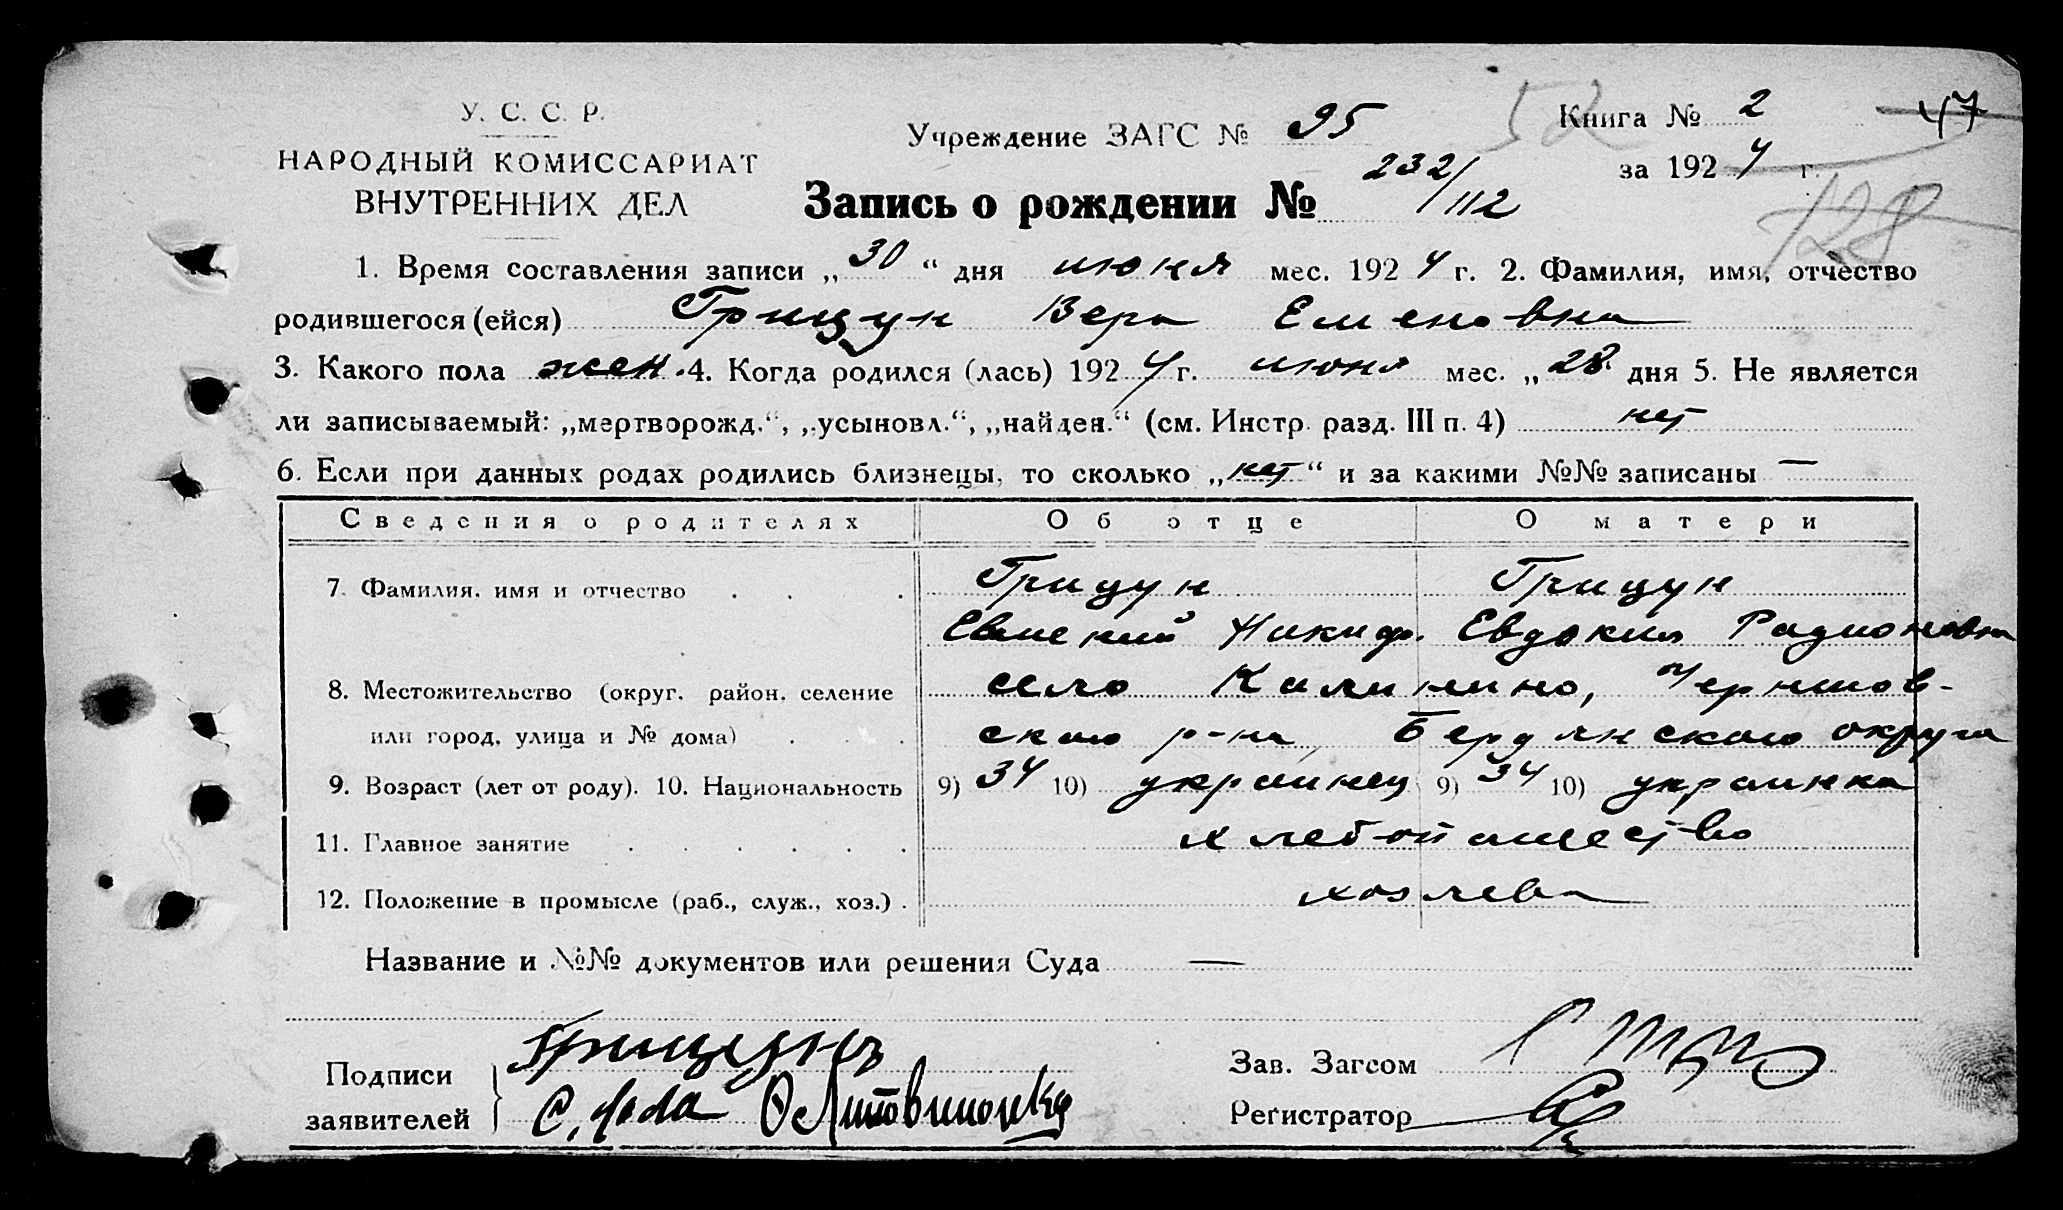 У. С. С. Р.
НАРОДНЫЙ КОМИССАРИАТ
ВНУТРЕННИХ ДЕЛ
Учреждение ЗАГС № 95
52
Книга № 2
47
за 1924 г.
128
Запись о рождении № 232/112
1. Время составления записи „30“ дня июня мес. 1924 г. 2. Фамилия, имя, отчество
родившегося (ейся) Грицун Вера Еменовна
3. Какого пола жен. 4. Когда родился (лась) 1924 г. июня мес. „28 дня 5. Не является
ли записываемый: „мертворожд.“, „усыновл.“, „найден.“ (см. Инстр. разд. III п. 4) нет
6. Если при данных родах родились близнецы, то сколько „нет“ и за какими №№ записаны —
Сведения о родителях Об отце О матери
7. Фамилия, имя и отчество Грицун Грицун
Никиф. Евдокия Радионовна
8. Местожительство (округ, район, селение село Калинино, Черниов-
или город, улица и № дома) ского р-на, Бердянского округа
9. Возраст (лет от роду). 10. Национальность 9) 34 10) украинец 9) 34 10) украинка
11. Главное занятие хлебопашество
12. Положение в промысле (раб., служ., хоз.) хозяева
Название и №№ документов или решения Суда —
Подписи
заявителей
Грицунъ
Зав. Загсом
Регистратор